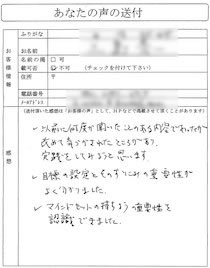 あなたの声の送付
お客様情報
ふりがな
お名前
名前の掲載可否
□ 可
☑ 不可 (チェックを付けて下さい)
住所 〒
電話番号
メールアドレス
(送付頂いた感想は「お客様の声」として、HPなどで掲載させて頂くことがあります)
感想
✓ 以前に何度か聞いたことのある内容であったが
改めて気づかされたところがあり、
実践をしてみようと思います
✓ 目標の設定とそのすじみちの重要性が
よく分かりました。
✓ マインドセットの持ちようの重要性を
認識できました。